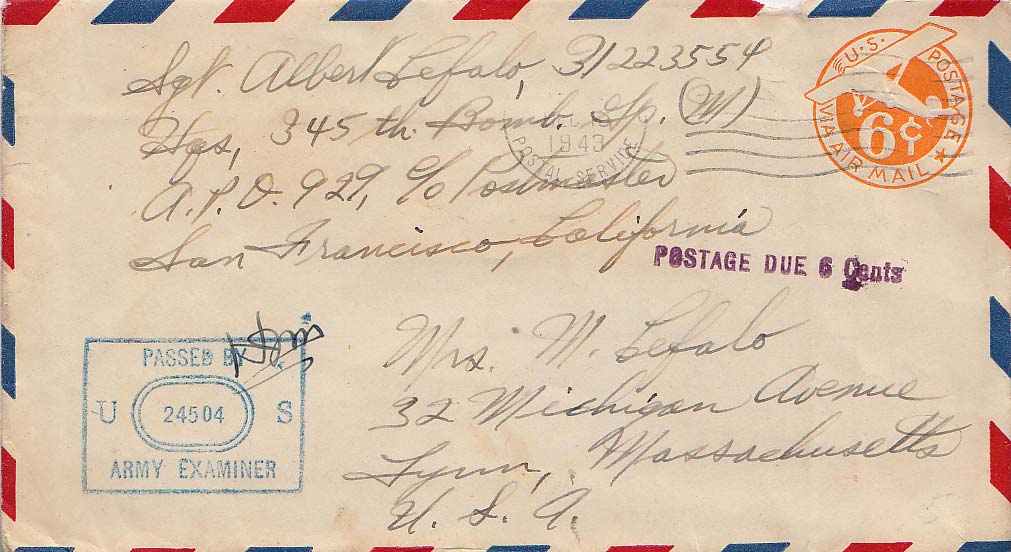 Sgt. Albert Cefalo, 31223554
Hqs, 345th Bomb. Gp. (M)
A.P.O. 929, c/o Postmaster
San Francisco, California
U.S. POSTAGE
6¢
VIA AIR MAIL
1943
POSTAL SERVICE
POSTAGE DUE 6 Cents
Mrs. M. Cefalo
32 Michigan Avenue
Lynn, Massachusetts
U. S. A.
PASSED BY
U 24504 S
ARMY EXAMINER